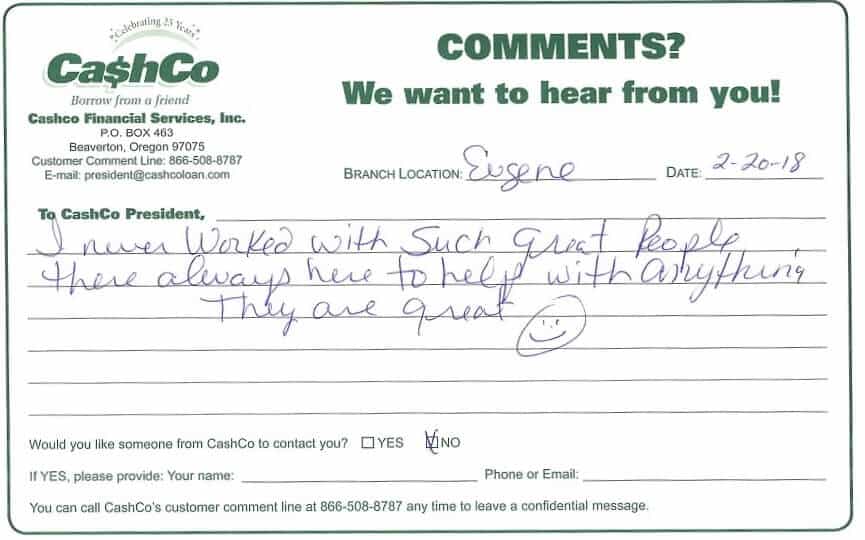 Celebrating 25 Years
Ca$hCo
Borrow from a friend
Cashco Financial Services, Inc.
P.O. BOX 463
Beaverton, Oregon 97075
Customer Comment Line: 866-508-8787
E-mail: president@cashcoloan.com
COMMENTS?
We want to hear from you!
BRANCH LOCATION: Eugene DATE: 2-20-18
To CashCo President,
I never Worked with Such Great People
there always here to help with anything
They are great
Would you like someone from CashCo to contact you? YES NO
If YES, please provide: Your name: Phone or Email:
You can call CashCo's customer comment line at 866-508-8787 any time to leave a confidential message.